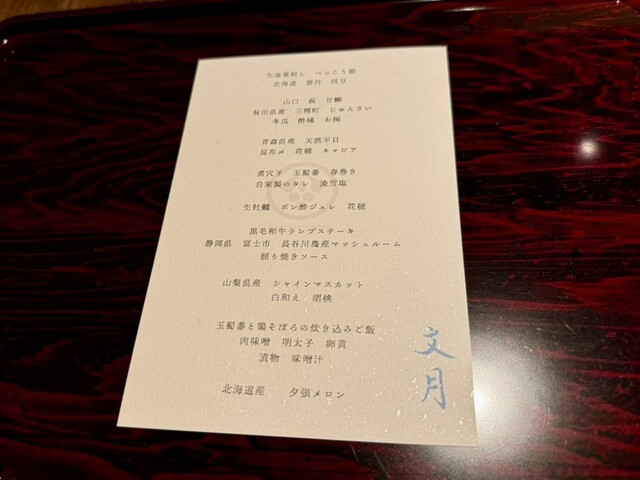 生湯葉刺し べっこう餡
北海道 雲丹 枝豆
山口 萩 甘鯛
秋田県産 三種町 じゅんさい
冬瓜 酢橘 お椀
青森県産 天然平目
昆布〆 花穂 キャビア
煮穴子 玉蜀黍 春巻き
自家製のタレ 淡雪塩
生牡蠣 ポン酢ジュレ 花穂
黒毛和牛ランプステーキ
静岡県 富士市 長谷川農産マッシュルーム
照り焼きソース
山梨県産 シャインマスカット
白和え 胡桃
玉蜀黍と鶏そぼろの炊き込みご飯
肉味噌 明太子 卵黄
漬物 味噌汁
北海道産 夕張メロン
文月